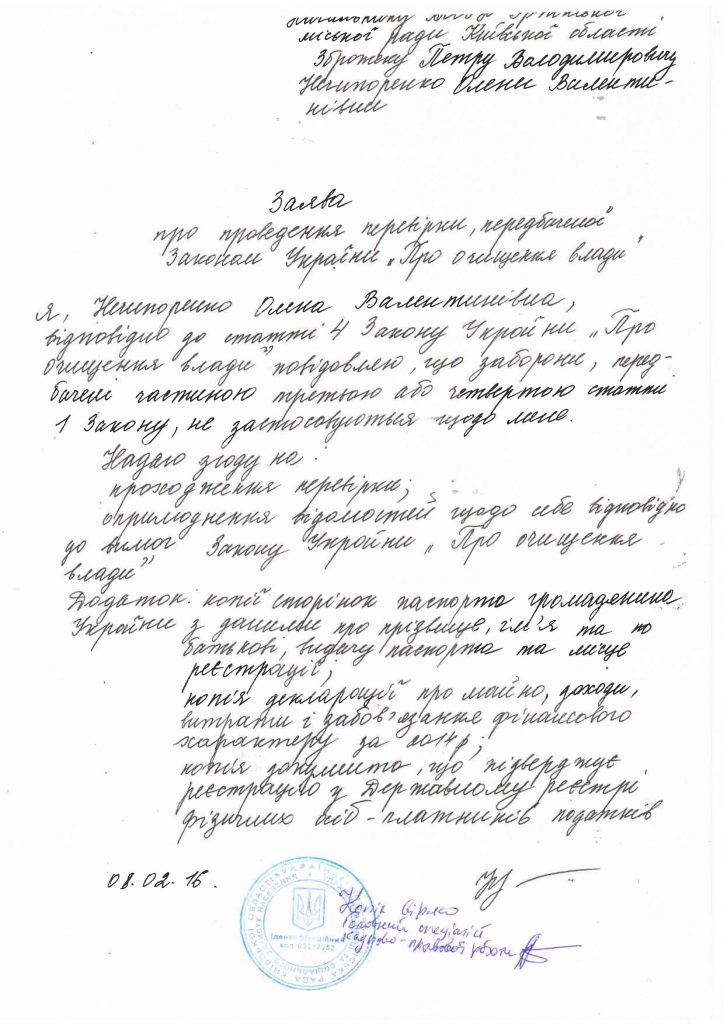 міської ради Київської області
Збротеку Петру Володимировичу
Нечипоренко Олени Валенти-
нівни
Заява
про проведення перевірки, передбаченої
Законом України „Про очищення влади"
Я, Нечипоренко Олена Валентинівна,
відповідно до статті 4 Закону України „Про
очищення влади" повідомляю, що заборони, перед-
бачені частиною третьою або четвертою статті
1 Закону, не застосовуються щодо мене.
Надаю згоду на:
проходження перевірки;
оприлюднення відомостей щодо себе відповідно
до вимог Закону України „Про очищення
влади"
Додаток: копії сторінок паспорта громадянина
України з даними про прізвище, ім'я та по
батькові, видачу паспорта та місце
реєстрації;
копія декларації про майно, доходи,
витрати і забов'язання фінансового
характеру за 2014р;
копія документа, що підверджує
реєстрацію у Державному реєстрі
фізичних осіб-платників податків
08.02.16.
Копія вірна
Головний спеціаліст
кадрово-правової роботи
Ідентифікаційний
код